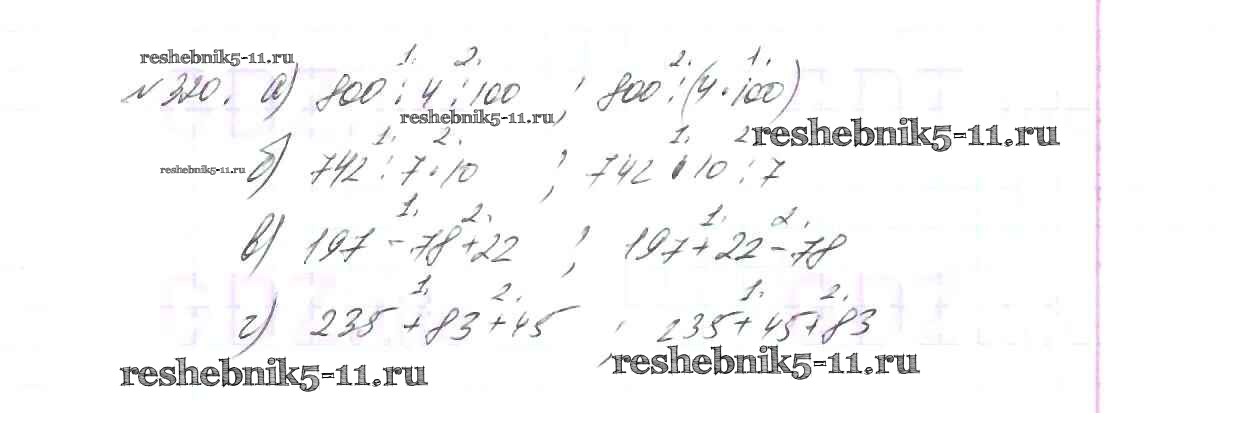 reshebnik5-11.ru
1. 2. 2. 1.
№320. а) 800 : 4 : 100 ; 800 : (4 · 100)
reshebnik5-11.ru
reshebnik5-11.ru
1. 2. 1. 2
reshebnik5-11.ru
б) 742 : 7 · 10 ; 742 · 10 : 7
1. 2. 1. 2.
в) 197 - 78 + 22 ; 197 + 22 - 78
1. 2. 1. 2.
г) 235 + 83 + 45 ; 235 + 45 + 83
reshebnik5-11.ru
reshebnik5-11.ru